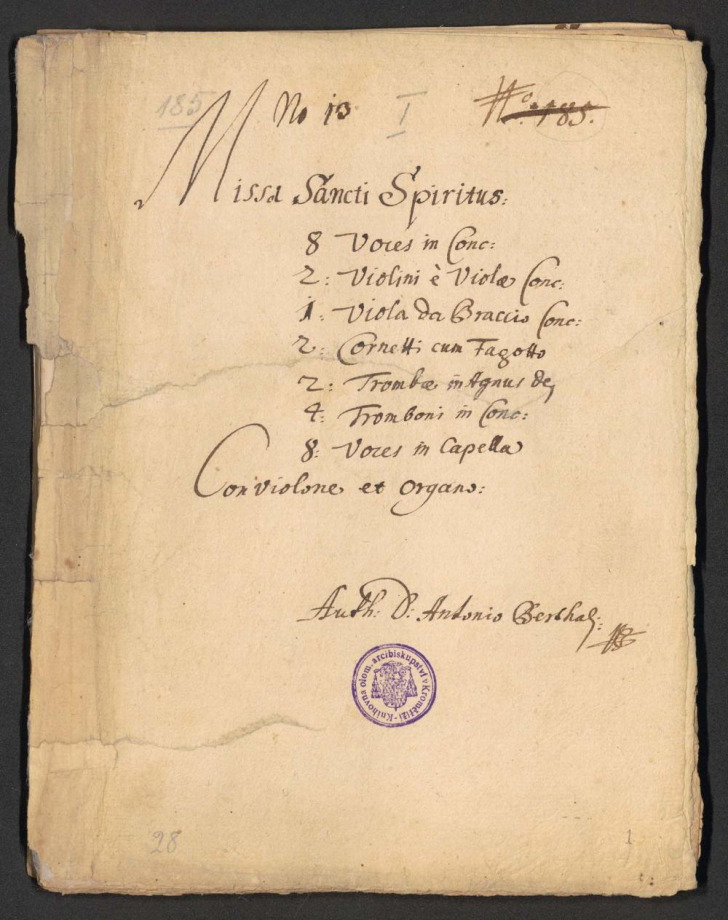 185
No 13 I No: 185.
Missa Sancti Spiritus:
8 Voces in Conc:
2: Violini è Violæ Conc:
1: Viola da Braccio Conc:
2: Cornetti cum Fagotto
2: Trombæ in Agnus Dej
4: Tromboni in Conc:
8: Voces in Capella
Con violone et Organo:
Auth: D: Antonio Berthali:
Knihovna olom. arcibiskupství v Kroměříži
28 1